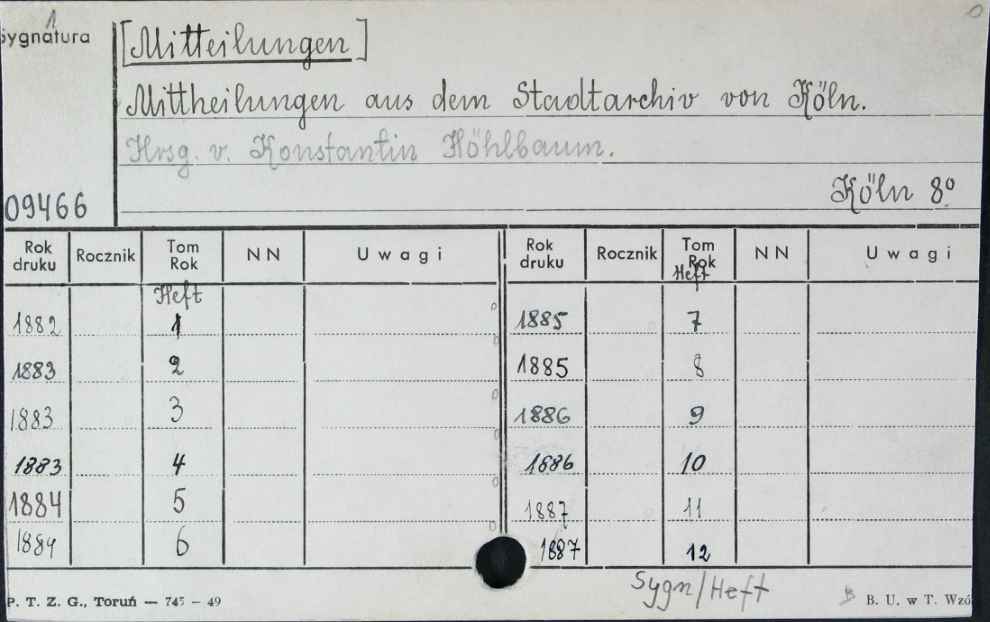 1
Sygnatura
[Mitteilungen]
Mittheilungen aus dem Stadtarchiv von Köln.
Hrsg. v. Konstantin Höhlbaum.
Köln 8º
09466
Rok druku Rocznik Tom Rok NN Uwagi Rok druku Rocznik Tom Rok NN Uwagi
Heft Heft
1882 1 1885 7
1883 2 1885 8
1883 3 1886 9
1883 4 1886 10
1884 5 1887 11
1884 6 1887 12
Sygn/Heft
P. T. Z. G., Toruń — 745 – 49 B. U. w T. Wzó